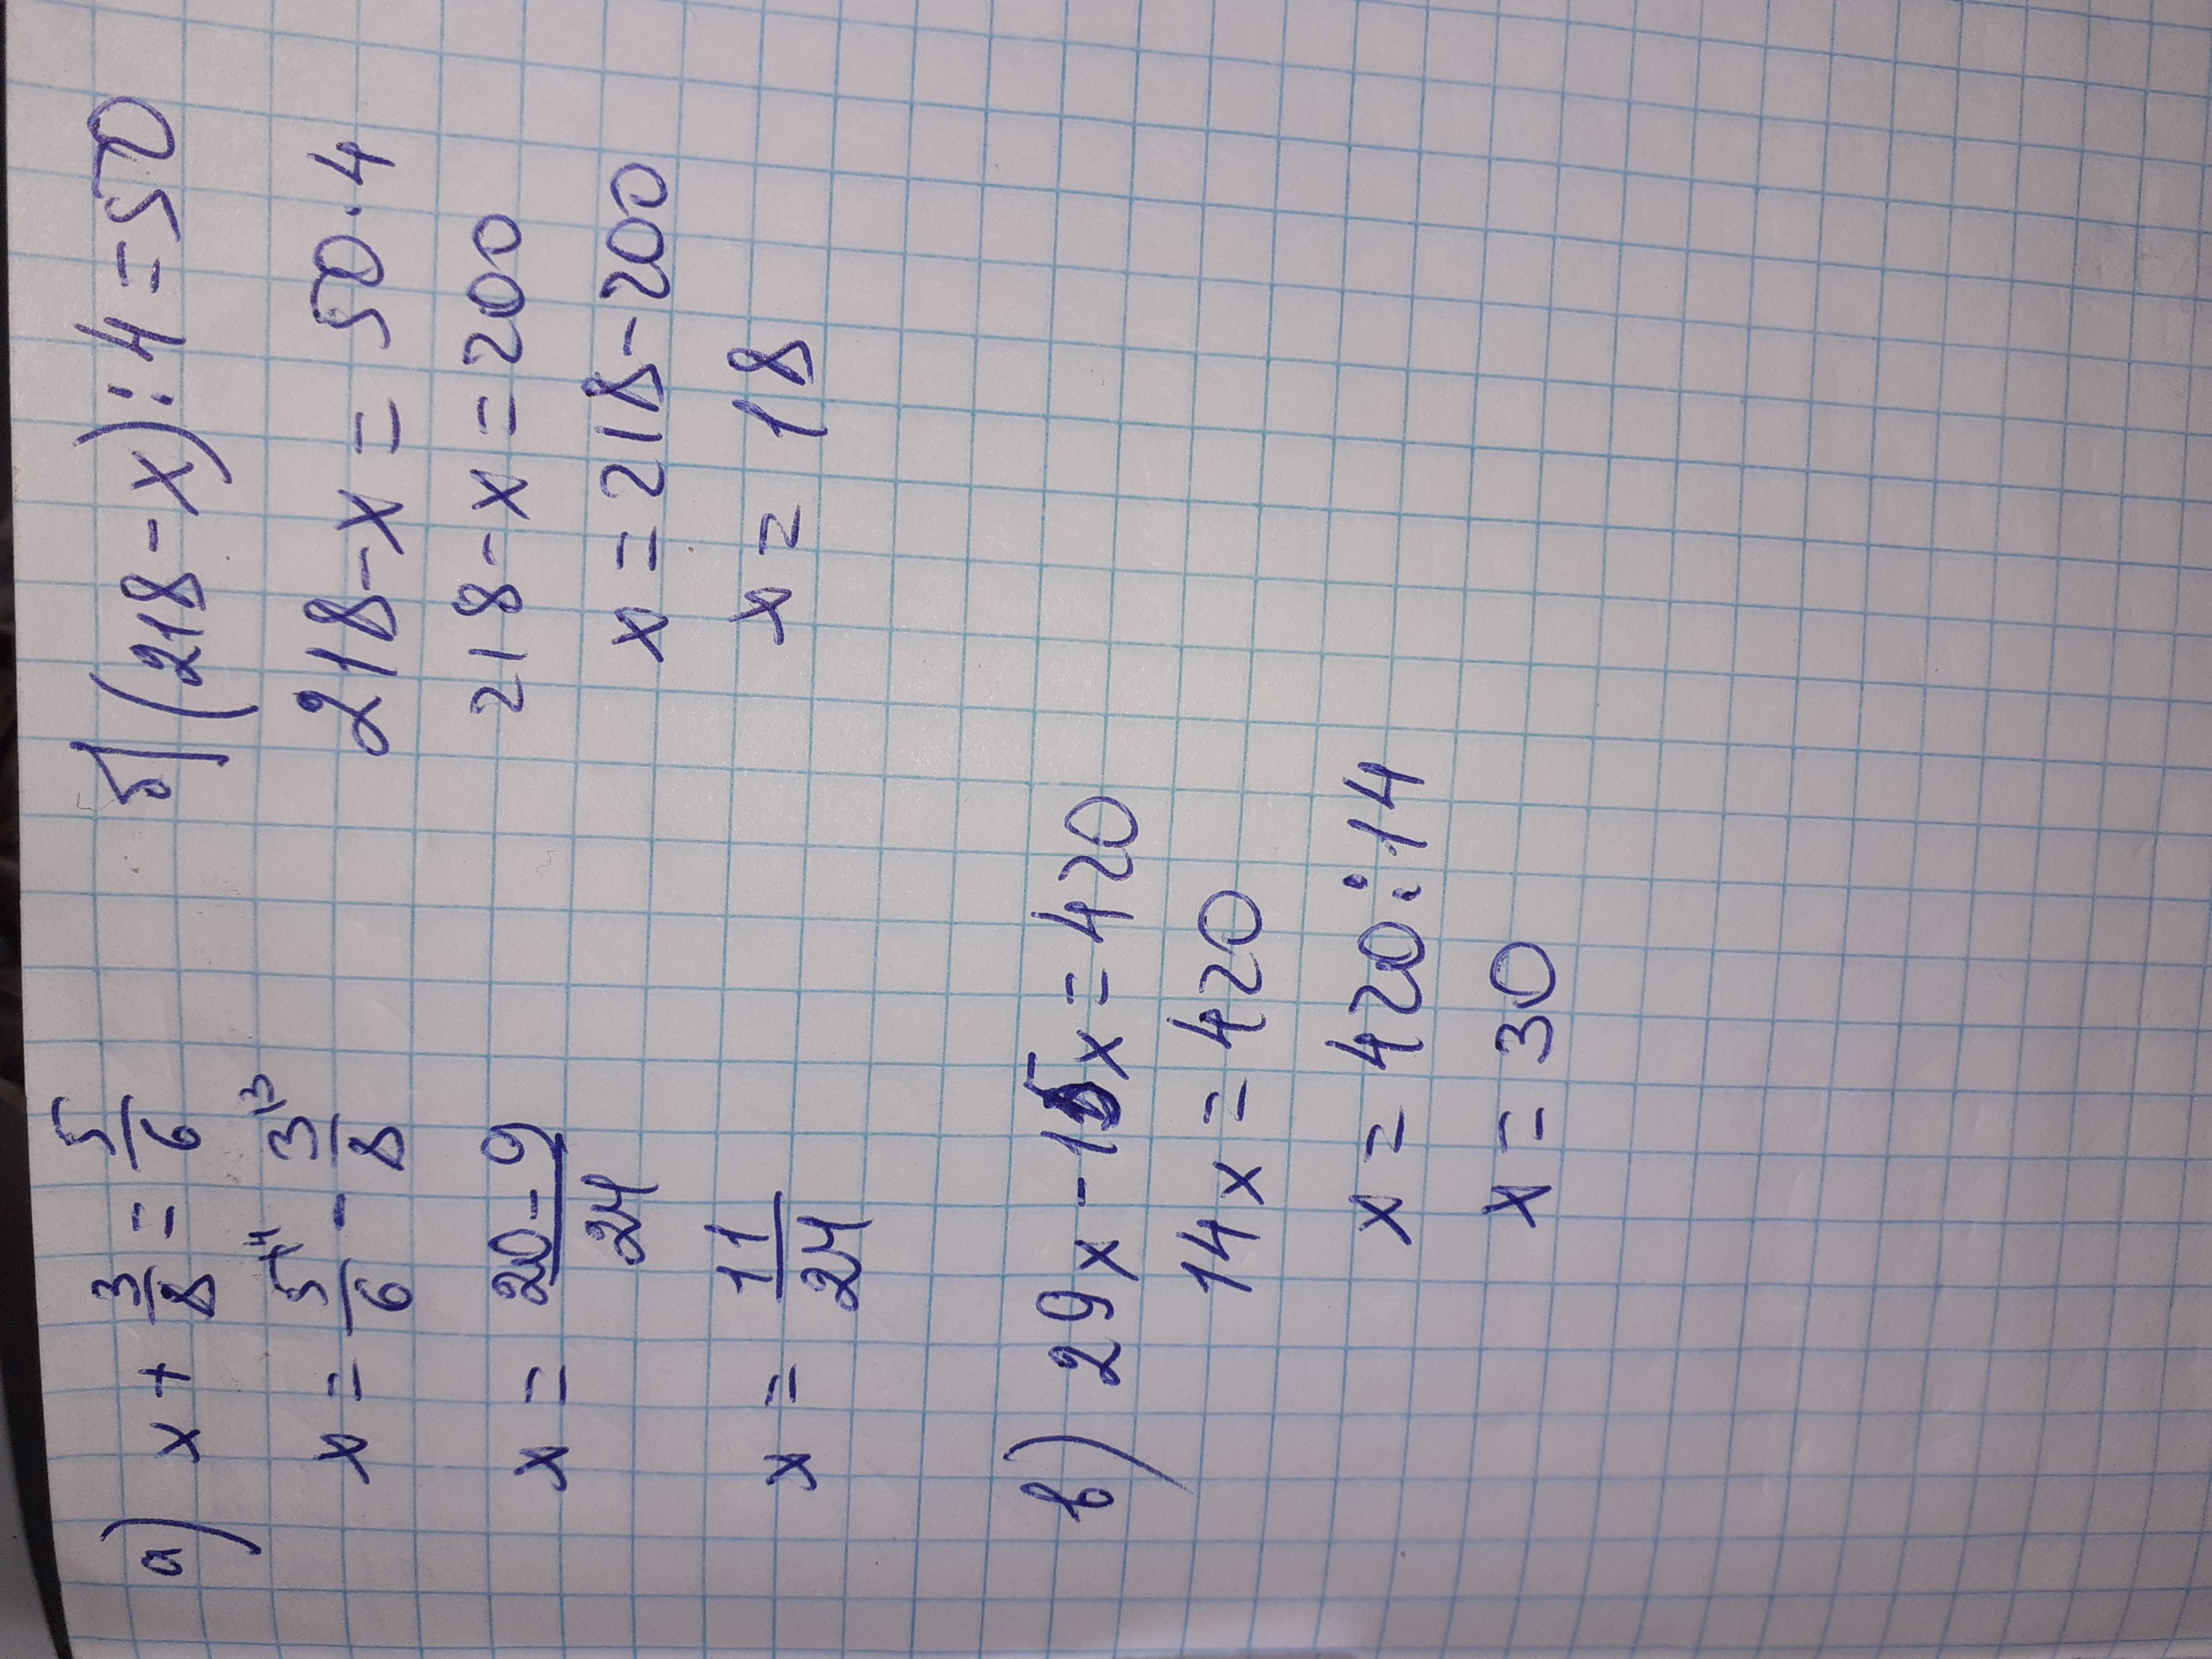 а) x + 3/8 = 5/6
x = 5/6 \4 - 3/8 \3
x = 20-9/24
x = 11/24
б) (218-x):4=50
218-x=50·4
218-x=200
x=218-200
x=18
в) 29x-15x=420
14x=420
x=420:14
x=30